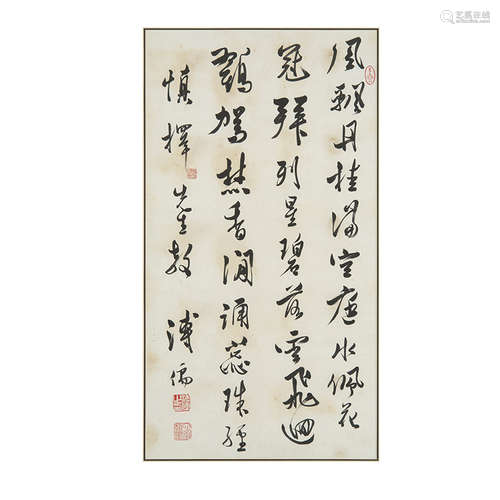 艺狐在线
風飄丹桂滿空庭水佩花
冠拜列星碧落雲飛迴
鶴駕焚香閒誦蕊珠經
慎擇先生教 溥儒